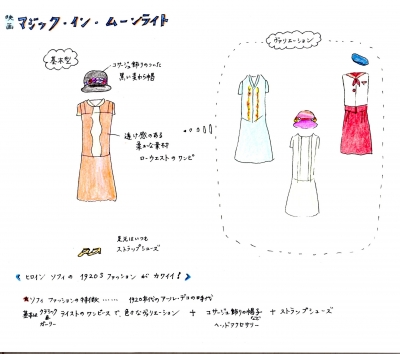 映画 マジック・イン・ムーンライト
基本型
コサージュ飾りのついた
黒い麦わら帽
透け感のある
柔かな素材
ローウエストのワンピ
足元はいつも
ストラップシューズ
ヴァリエーション
ヒロイン ソフィの 1920s ファッションが カワイイ!
★ソフィ ファッションの特徴…… 1920年代のアール・デコの時代
基本は クラシック & ガーリー テイストのワンピースで、色々なヴァリエーション + コサージュ飾りの帽子などヘッドアクセサリー + ストラップシューズ